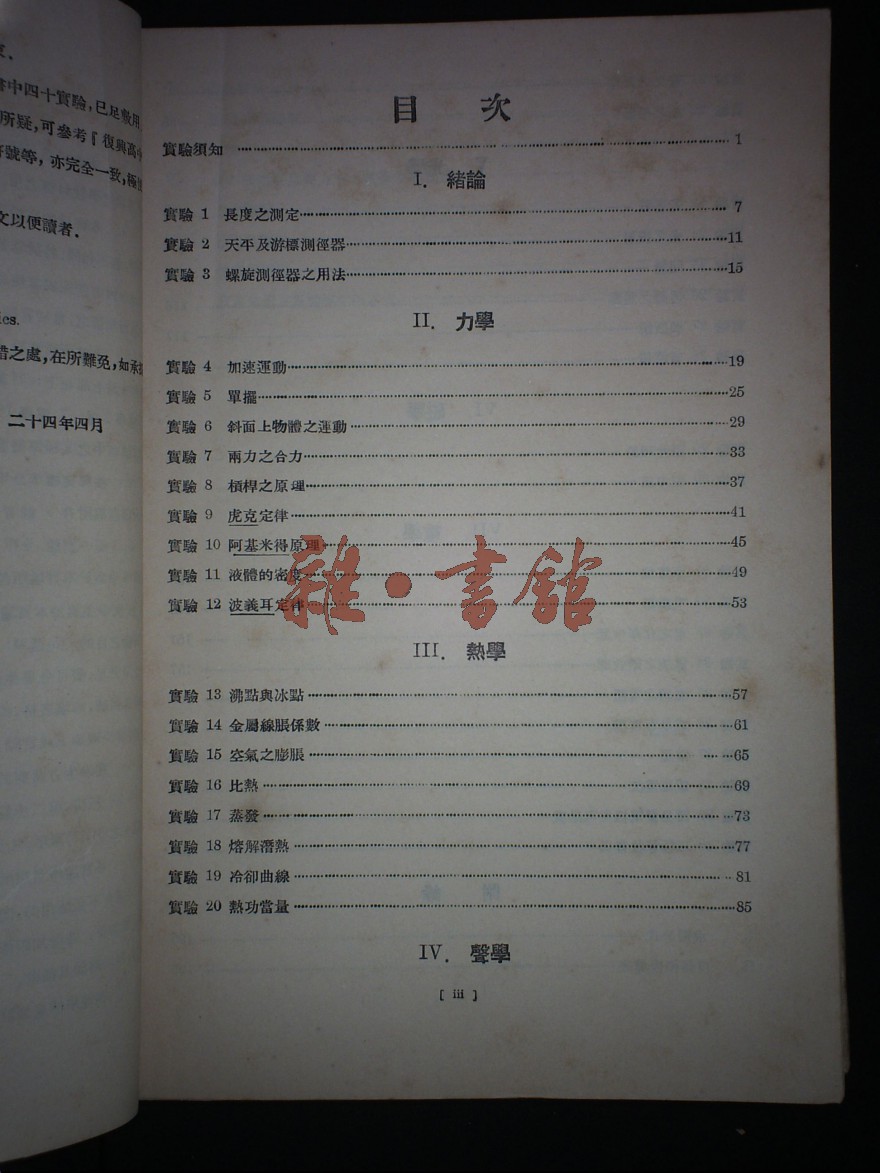 書中四十實驗,已足敷用
所疑,可參考『復興高中
符號等,亦完全一致,極
文以便讀者.
ics.
錯之處,在所難免,如承
二十四年四月
目 次
實驗須知 1
I. 緒論
實驗 1 長度之測定 7
實驗 2 天平及游標測徑器 11
實驗 3 螺旋測徑器之用法 15
II. 力學
實驗 4 加速運動 19
實驗 5 單擺 25
實驗 6 斜面上物體之運動 29
實驗 7 兩力之合力 33
實驗 8 槓桿之原理 37
實驗 9 虎克定律 41
實驗 10 阿基米得原理 45
實驗 11 液體的密度 49
實驗 12 波義耳定律 53
雜·書館
III. 熱學
實驗 13 沸點與冰點 57
實驗 14 金屬線脹係數 61
實驗 15 空氣之膨脹 65
實驗 16 比熱 69
實驗 17 蒸發 73
實驗 18 熔解潛熱 77
實驗 19 冷卻曲線 81
實驗 20 熱功當量 85
IV. 聲學
[ iii ]